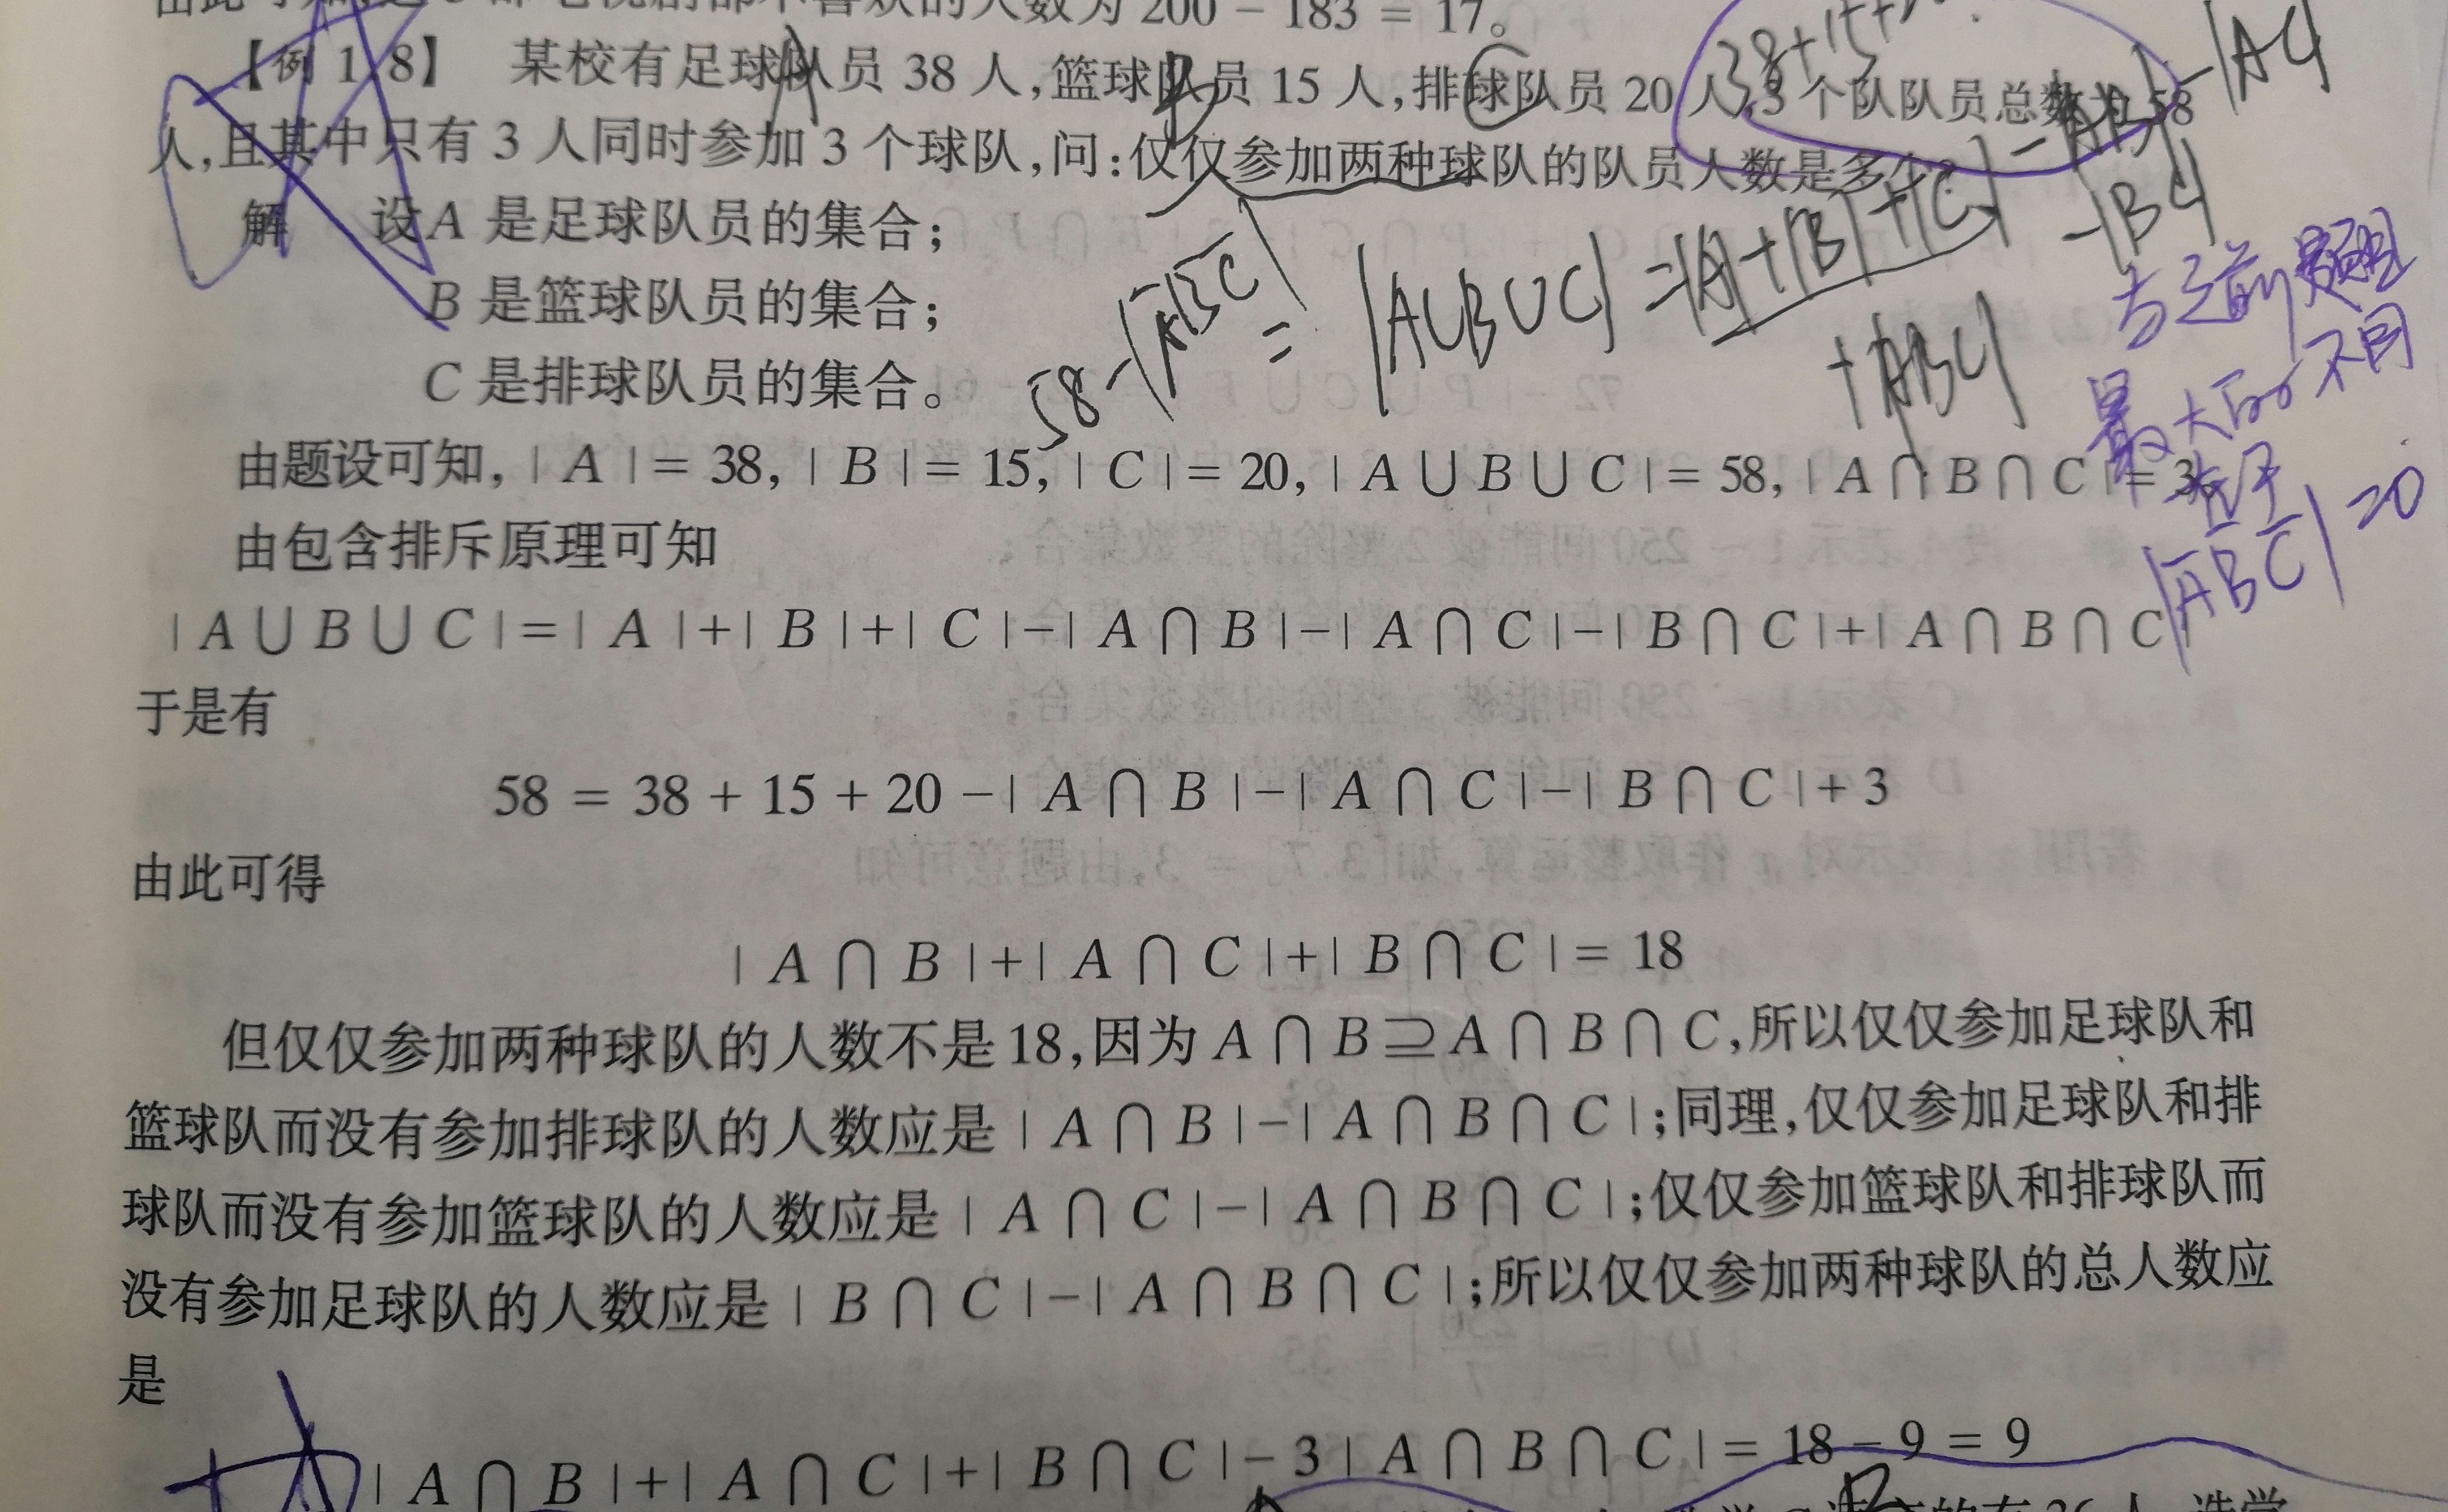 200 - 183 = 17。
【例 1.8】 某校有足球队员 38 人,篮球队员 15 人,排球队员 20 人,3 个队队员总数为 58
人,且其中只有 3 人同时参加 3 个球队,问:仅仅参加两种球队的队员人数是多少?
解 设 A 是足球队员的集合;
B 是篮球队员的集合;
C 是排球队员的集合。
58 - |A̅B̅C̅| = |A∪B∪C| = |A|+|B|+|C| - |AB| - |AC|
- |BC|
+ |ABC|
与之前题
最大的不同
在于
|A̅B̅C̅| = 0
由题设可知,| A | = 38, | B | = 15, | C | = 20, | A ∪ B ∪ C | = 58, | A ∩ B ∩ C | = 3
由包含排斥原理可知
| A ∪ B ∪ C | = | A | + | B | + | C | - | A ∩ B | - | A ∩ C | - | B ∩ C | + | A ∩ B ∩ C |
于是有
58 = 38 + 15 + 20 - | A ∩ B | - | A ∩ C | - | B ∩ C | + 3
由此可得
| A ∩ B | + | A ∩ C | + | B ∩ C | = 18
但仅仅参加两种球队的人数不是 18,因为 A ∩ B ⊇ A ∩ B ∩ C,所以仅仅参加足球队和
篮球队而没有参加排球队的人数应是 | A ∩ B | - | A ∩ B ∩ C |;同理,仅仅参加足球队和排
球队而没有参加篮球队的人数应是 | A ∩ C | - | A ∩ B ∩ C |;仅仅参加篮球队和排球队而
没有参加足球队的人数应是 | B ∩ C | - | A ∩ B ∩ C |;所以仅仅参加两种球队的总人数应
是
| A ∩ B | + | A ∩ C | + | B ∩ C | - 3 | A ∩ B ∩ C | = 18 - 9 = 9